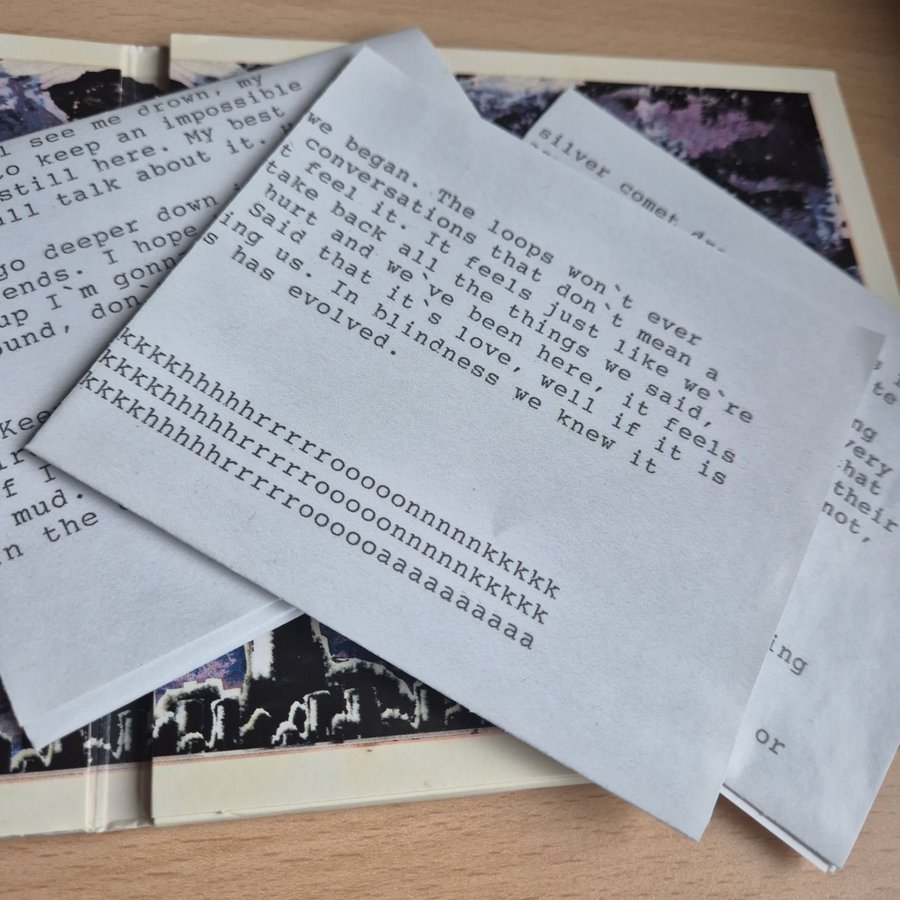 see me drown, my
to keep an impossible
still here. My best
all talk about it.
go deeper down
ends. I hope
up I`m gonn
ound, don`
Kee
f I
mud.
n the
we began. The loops won`t ever
conversations that don`t mean a
t feel it. It feels just like we`re
take back all the things we said,
hurt and we`ve been here, it feels
Said that it`s love, well if it is
ing us. In blindness we knew it
s has evolved.
kkkkhhhhhrrrrrooooonnnnnkkkkk
kkkkhhhhhrrrrrooooonnnnnkkkkk
kkkkhhhhhrrrrroooooaaaaaaaaaa
silver comet
te
ng
very
hat
their
not,
ing
or